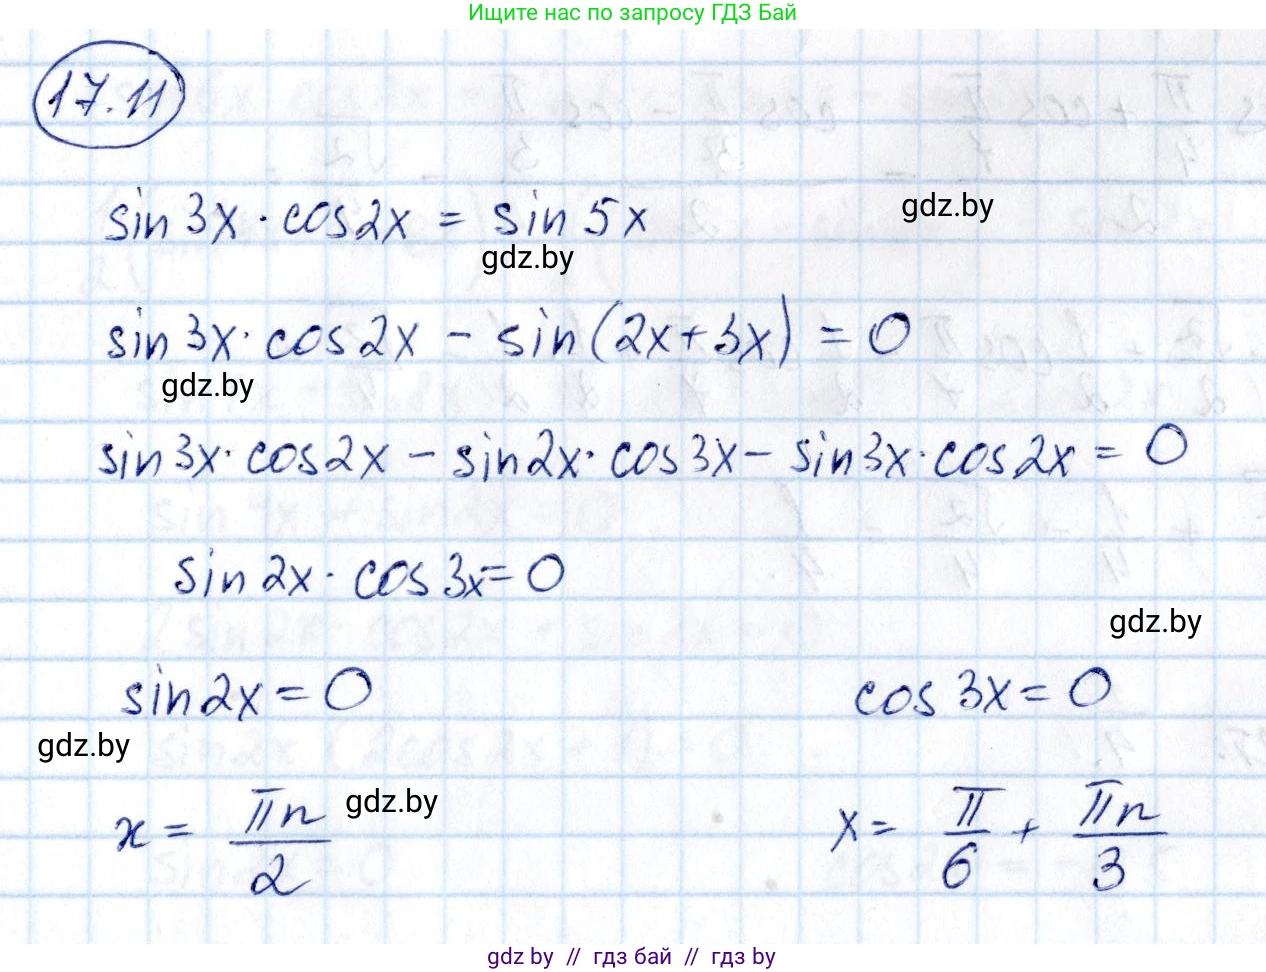 Ищите нас по запросу ГДЗ Бай
17.11
sin 3x · cos 2x = sin 5x
gdz.by
gdz.by
sin 3x · cos 2x − sin(2x+3x) = 0
gdz.by
sin 3x · cos 2x − sin 2x · cos 3x − sin 3x · cos 2x = 0
sin 2x · cos 3x = 0
gdz.by
sin 2x = 0 cos 3x = 0
gdz.by
gdz.by
x = πn/2 x = π/6 + πn/3
gdz.by // гдз бай // гдз by